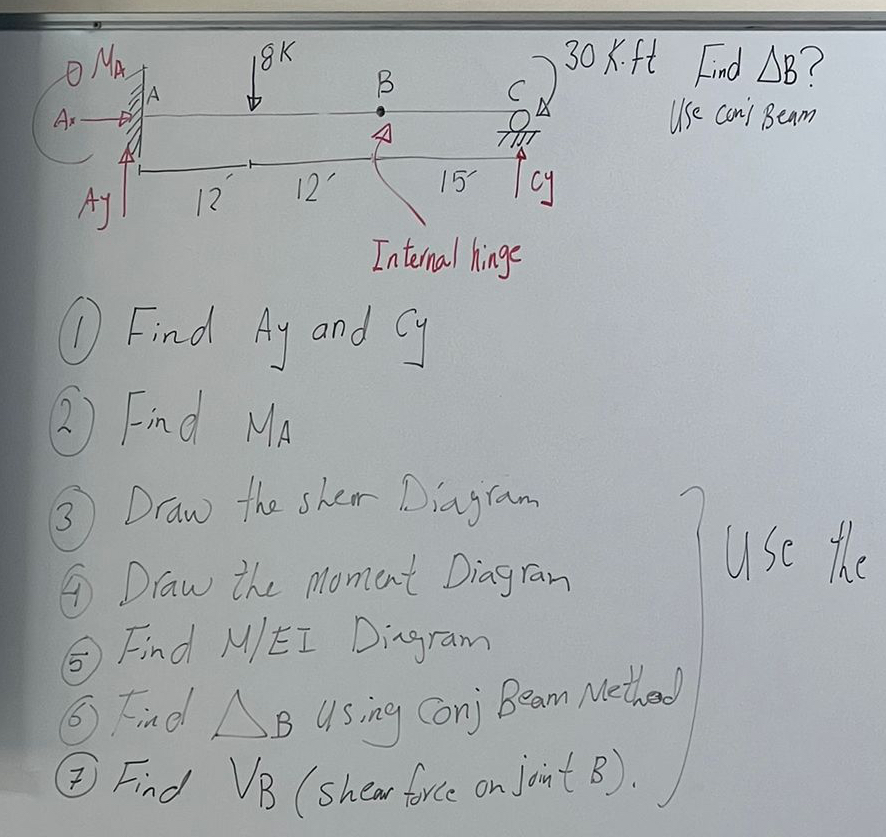 MA 8K 30 K.ft Find ΔB?
A B C Use conj Beam
Ax
Ay 12' 12' 15' Cy
Internal hinge
① Find Ay and Cy
② Find MA
③ Draw the shear Diagram
④ Draw the Moment Diagram
⑤ Find M/EI Diagram
⑥ Find ΔB Using Conj Beam Method
⑦ Find VB (shear force on joint B).
Use the